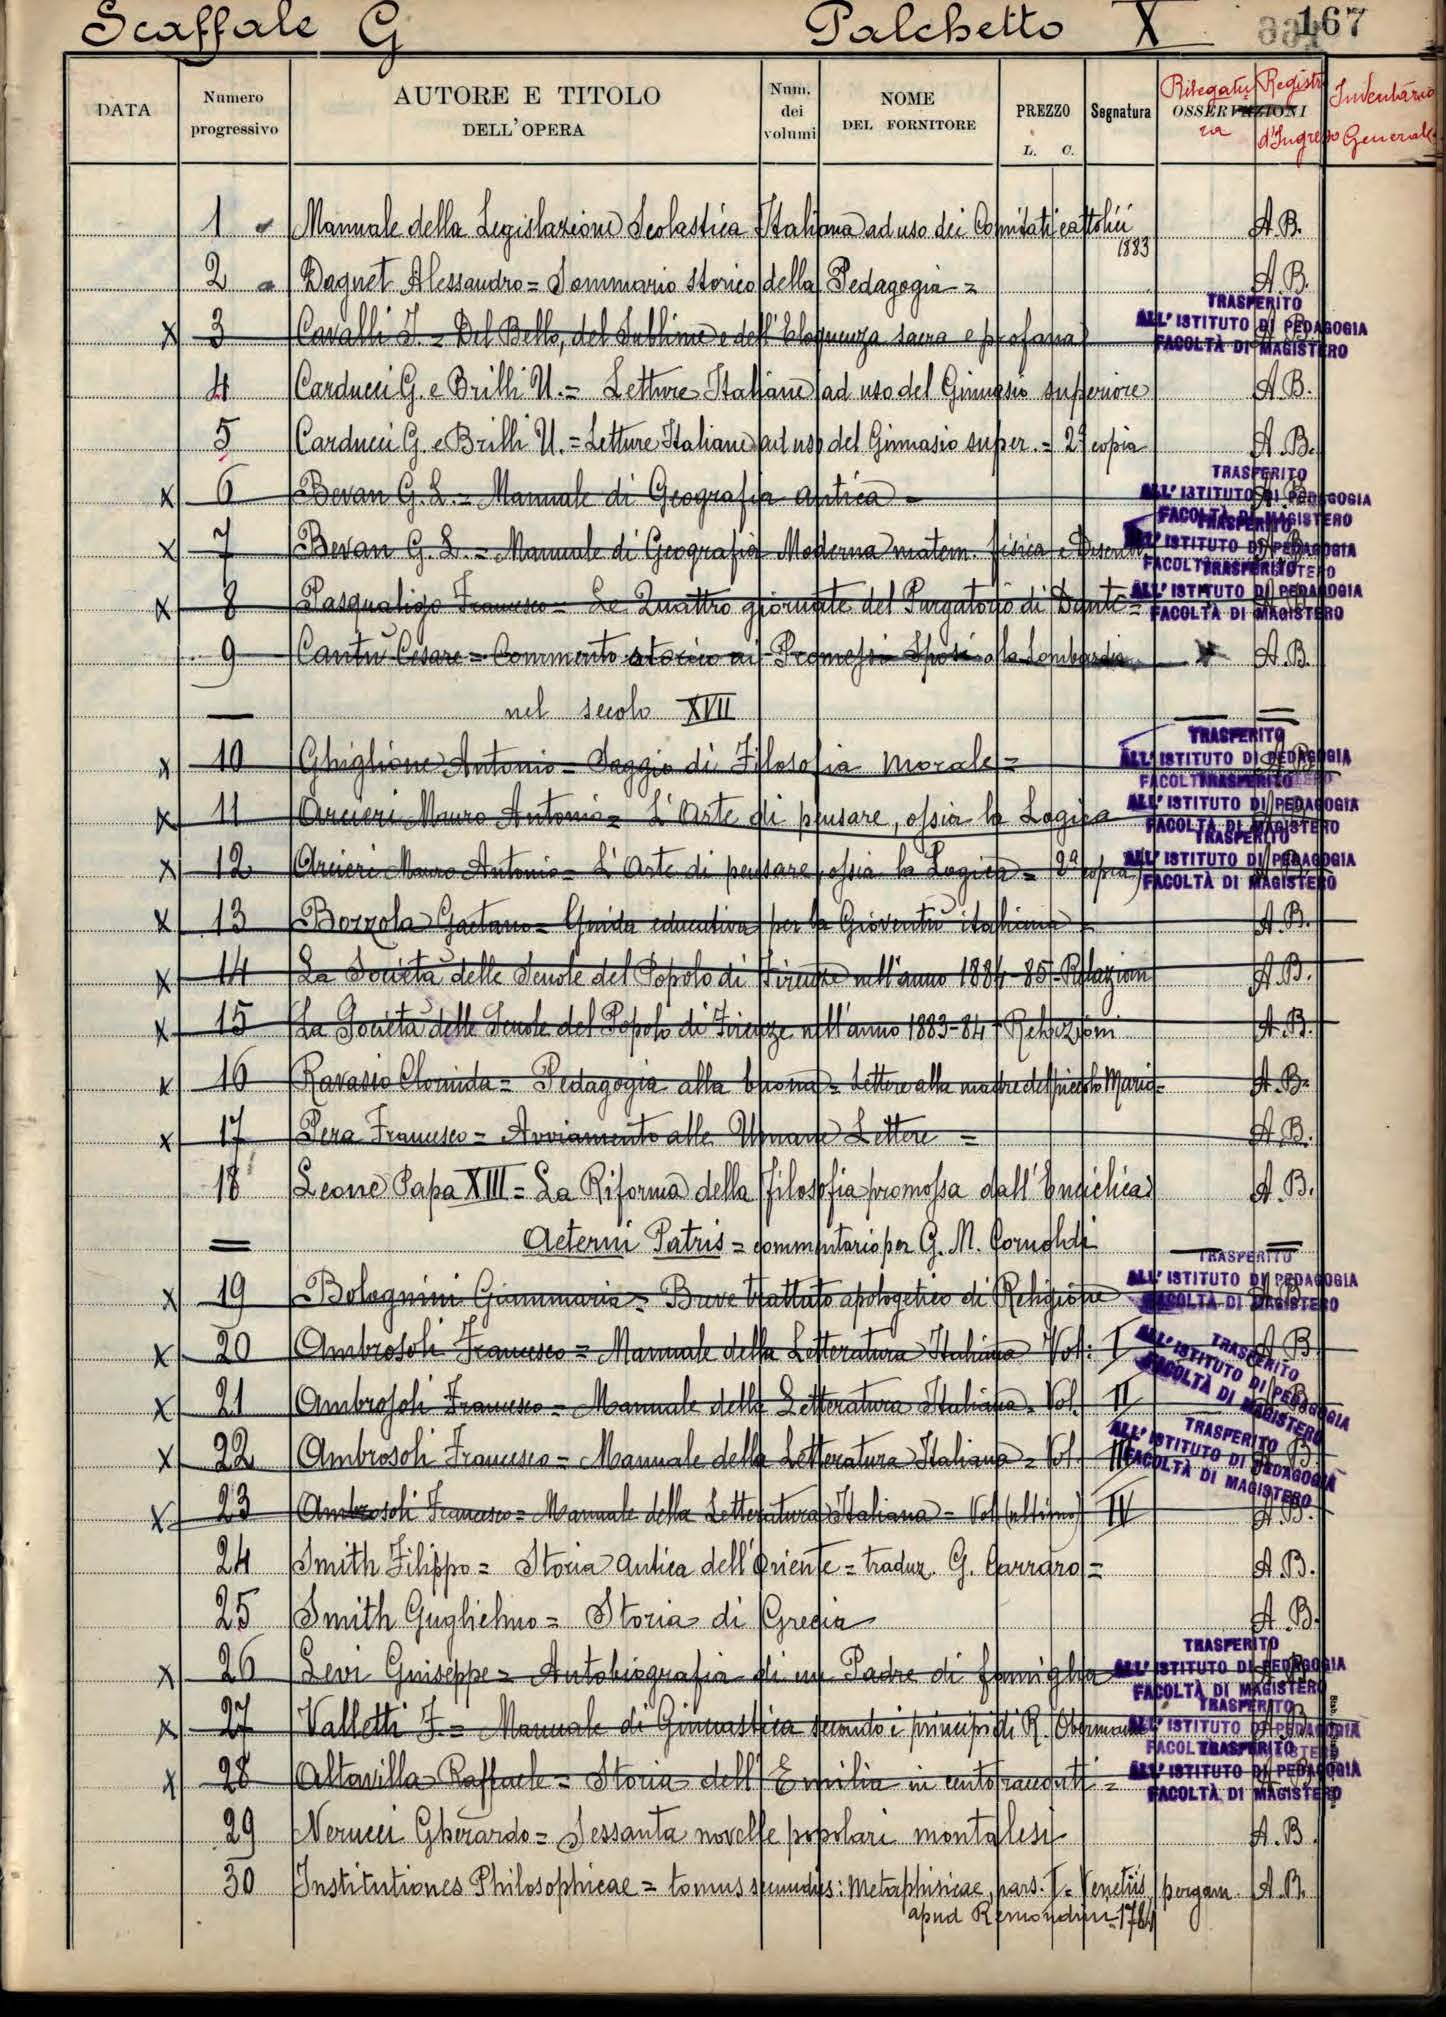 Scaffale G Palchetto X 167
DATA Numero progressivo AUTORE E TITOLO DELL'OPERA Num. dei volumi NOME DEL FORNITORE PREZZO L. C. Segnatura OSSERVAZIONI Rilegatura Registro d'Ingresso Inventario Generale
1 Manuale della Legislazione Scolastica Italiana ad uso dei Comitati cattolici A.B.
1883
2 Daguet Alessandro = Sommario storico della Pedagogia = A.B.
TRASFERITO ALL'ISTITUTO DI PEDAGOGIA FACOLTÀ DI MAGISTERO
X 3 Cavalli J. = Del Bello, del Sublime e dell'Eloquenza sacra e profana
4 Carducci G. e Brilli U. = Letture Italiane ad uso del Ginnasio superiore A.B.
5 Carducci G. e Brilli U. = Letture Italiane ad uso del Ginnasio super. = 2ª copia A.B.
X 6 Bevan G. L. = Manuale di Geografia antica = TRASFERITO ALL'ISTITUTO DI PEDAGOGIA FACOLTÀ DI MAGISTERO
X 7 Bevan G. L. = Manuale di Geografia Moderna matem. fisica e TRASFERITO ALL'ISTITUTO DI PEDAGOGIA FACOLTÀ
X 8 Pasqualigo Francesco = Le Quattro giornate del Purgatorio di Dante = TRASFERITO ALL'ISTITUTO DI PEDAGOGIA FACOLTÀ DI MAGISTERO
9 Cantù Cesare = Commento storico ai Promessi Sposi o la Lombardia A.B.
nel secolo XVII
X 10 Ghiglione Antonio = Saggio di Filosofia morale = TRASFERITO ALL'ISTITUTO DI PEDAGOGIA
X 11 Arcieri Mauro Antonio = L'Arte di pensare, ossia la Logica TRASFERITO ALL'ISTITUTO DI PEDAGOGIA FACOLTÀ DI MAGISTERO
X 12 Arcieri Mauro Antonio = L'Arte di pensare, ossia la Logica = 2ª copia TRASFERITO ALL'ISTITUTO DI PEDAGOGIA FACOLTÀ DI MAGISTERO
X 13 Bozzola Gaetano = Guida educativa per la Gioventù italiana = A.B.
X 14 La Società delle Scuole del Popolo di Firenze nell'anno 1884-85 - Relazioni A.B.
X 15 La Società delle Scuole del Popolo di Firenze nell'anno 1883-84 - Relazioni A.B.
X 16 Ravasio Clorinda = Pedagogia alla buona = Lettere alla madre del piccolo Mario = A.B.
X 17 Pera Francesco = Avviamento alle Umane Lettere = A.B.
18 Leone Papa XIII = La Riforma della filosofia promossa dall'Enciclica A.B.
Aeterni Patris = commentario per G. M. Cornoldi
X 19 Bolognini Giammaria = Breve trattato apologetico di Religione TRASFERITO ALL'ISTITUTO DI PEDAGOGIA FACOLTÀ DI MAGISTERO
X 20 Ambrosoli Francesco = Manuale della Letteratura Italiana Vol: I A.B.
X 21 Ambrosoli Francesco = Manuale della Letteratura Italiana = Vol. II TRASFERITO ALL'ISTITUTO DI PEDAGOGIA FACOLTÀ DI MAGISTERO
X 22 Ambrosoli Francesco = Manuale della Letteratura Italiana = Vol. III TRASFERITO ALL'ISTITUTO DI PEDAGOGIA FACOLTÀ DI MAGISTERO
X 23 Ambrosoli Francesco = Manuale della Letteratura Italiana = Vol (ultimo) IV A.B.
24 Smith Filippo = Storia antica dell'Oriente = traduz. G. Carraro = A.B.
25 Smith Guglielmo = Storia di Grecia A.B.
X 26 Levi Giuseppe = Autobiografia di un Padre di famiglia TRASFERITO ALL'ISTITUTO DI PEDAGOGIA FACOLTÀ DI MAGISTERO
X 27 Valletti F. = Manuale di Ginnastica secondo i principi di R. Obermann TRASFERITO ALL'ISTITUTO DI PEDAGOGIA FACOLTÀ DI MAGISTERO
X 28 Altavilla Raffaele = Storia dell'Emilia in cento racconti = TRASFERITO ALL'ISTITUTO DI PEDAGOGIA FACOLTÀ DI MAGISTERO
29 Nerucci Gherardo = Sessanta novelle popolari montalesi A.B.
30 Institutiones Philosophicae = tomus secundus: Metaphisicae, pars. I = Venetiis pergam. A.B.
apud Remondini - 1784